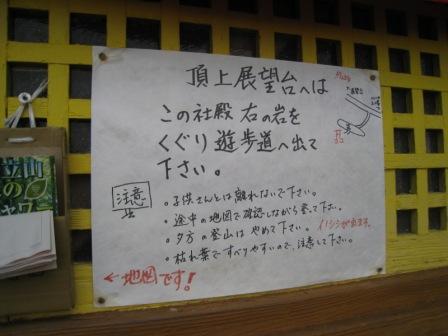 頂上展望台へは
この社殿右の岩を
くぐり遊歩道へ出て
下さい。
注意
・子供さんとは離れないで下さい。
・途中の地図で確認しながら登って下さい。
・夕方の登山はやめて下さい。イノシシが出ます。
・枯れ葉ですべりやすいので、注意して下さい。
←地図です!
立山